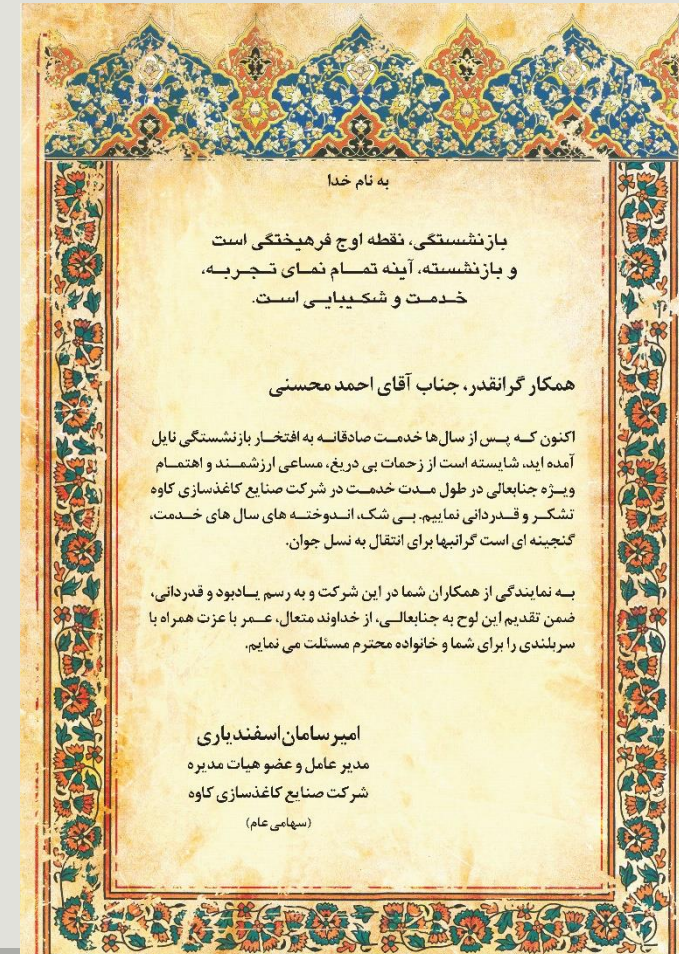 به نام خدا
بازنشستگی، نقطه اوج فرهیختگی است
و بازنشسته، آینه تمام نمای تجربه،
خدمت و شکیبایی است.
همکار گرانقدر، جناب آقای احمد محسنی
اکنون که پس از سال‌ها خدمت صادقانه به افتخار بازنشستگی نایل
آمده اید، شایسته است از زحمات بی دریغ، مساعی ارزشمند و اهتمام
ویژه جنابعالی در طول مدت خدمت در شرکت صنایع کاغذسازی کاوه
تشکر و قدردانی نماییم. بی شک، اندوخته های سال های خدمت،
گنجینه ای است گرانبها برای انتقال به نسل جوان.
به نمایندگی از همکاران شما در این شرکت و به رسم یادبود و قدردانی،
ضمن تقدیم این لوح به جنابعالی، از خداوند متعال، عمر با عزت همراه با
سربلندی را برای شما و خانواده محترم مسئلت می نمایم.
امیرسامان اسفندیاری
مدیر عامل و عضو هیات مدیره
شرکت صنایع کاغذسازی کاوه
(سهامی عام)